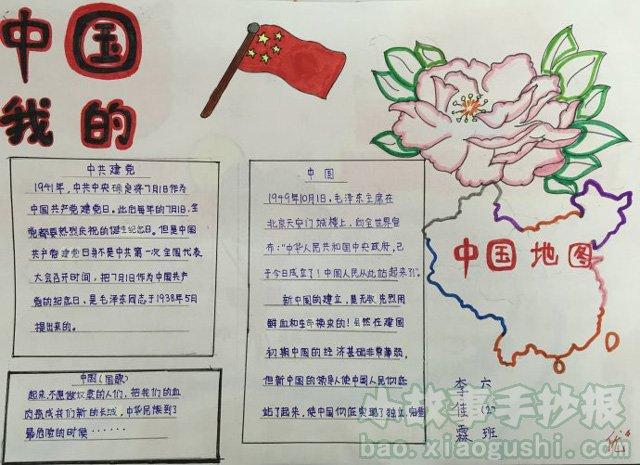 中国
我的
中共建党
1941年，中共中央确定将7月1作为
中国共产党建党日。此后每年的7月1日，全
党都要热烈庆祝的诞生纪念日。但是中国
共产党建党日并不是中共第一次全国代表
大会召开时间，把7月1日作为中国共产
党的纪念日，是毛泽东同志于1938年5月
提出来的。
中国（国歌）
起来不愿做奴隶的人们，把我们的血
肉筑成我们新的长城，中华民族到了
最危险的时候······
中国
1949年10月1日，毛泽东主席在
北京天安门城楼上，向全世界宣
布：“中华人民共和国中央政府，已
于今日成立了！中国人民从此站起来了”。
新中国的建立，是无数先烈用
鲜血和生命换来的！虽然在建国
初期中国的经济基础非常薄弱，
但新中国的领导人使中国人民彻底
站了起来，使中国彻底实现了独立
中国地图
六(2)班
李佳霖
优
小故事手抄报
bao.xiaogushi.com